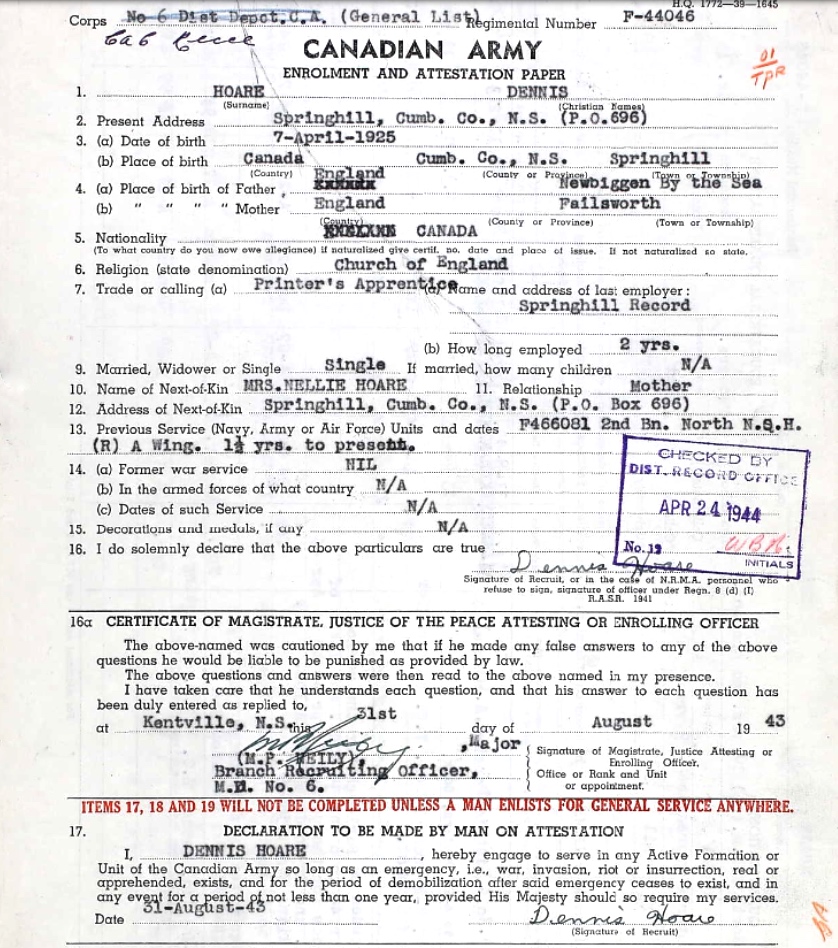 H.Q. 1772—39—1645
Corps No 6 Dist Depot.C.A. (General List) Regimental Number F-44046
CANADIAN ARMY
ENROLMENT AND ATTESTATION PAPER
01
TPR
1. HOARE DENNIS
(Surname) (Christian Names)
2. Present Address Springhill, Cumb. Co., N.S. (P.O.696)
3. (a) Date of birth 7-April-1925
(b) Place of birth Canada Cumb. Co., N.S. Springhill
(Country) (County or Province) (Town or Township)
4. (a) Place of birth of Father England Newbiggen By the Sea
(b) " " " " Mother England Failsworth
(Country) (County or Province) (Town or Township)
5. Nationality CANADA
(To what country do you now owe allegiance) If naturalized give certif. no. date and place of issue. If not naturalized so state.
6. Religion (state denomination) Church of England
7. Trade or calling (a) Printer's Apprentice (a) Name and address of last employer:
Springhill Record
(b) How long employed 2 yrs.
9. Married, Widower or Single Single If married, how many children N/A
10. Name of Next-of-Kin MRS.NELLIE HOARE 11. Relationship Mother
12. Address of Next-of-Kin Springhill, Cumb. Co., N.S. (P.O. Box 696)
13. Previous Service (Navy, Army or Air Force) Units and dates F466081 2nd Bn. North N.S.H.
(R) A Wing. 1½ yrs. to present.
14. (a) Former war service NIL
(b) In the armed forces of what country N/A
(c) Dates of such Service N/A
15. Decorations and medals, if any N/A
CHECKED BY
DIST. RECORD OFFICE
APR 24 1944
No. 12
INITIALS
16. I do solemnly declare that the above particulars are true
Dennis Hoare
Signature of Recruit, or in the case of N.R.M.A. personnel who
refuse to sign, signature of officer under Regn. 8 (d) (I)
R.A.S.R. 1941
16a CERTIFICATE OF MAGISTRATE, JUSTICE OF THE PEACE ATTESTING OR ENROLLING OFFICER
The above-named was cautioned by me that if he made any false answers to any of the above
questions he would be liable to be punished as provided by law.
The above questions and answers were then read to the above named in my presence.
I have taken care that he understands each question, and that his answer to each question has
been duly entered as replied to,
at Kentville, N.S. this 31st day of August 19 43
,Major
(M.P. NEILY),
Branch Recruiting Officer,
M.D. No. 6.
Signature of Magistrate, Justice Attesting or
Enrolling Officer.
Office or Rank and Unit
or appointment.
ITEMS 17, 18 AND 19 WILL NOT BE COMPLETED UNLESS A MAN ENLISTS FOR GENERAL SERVICE ANYWHERE.
17. DECLARATION TO BE MADE BY MAN ON ATTESTATION
I, DENNIS HOARE, hereby engage to serve in any Active Formation or
Unit of the Canadian Army so long as an emergency, i.e., war, invasion, riot or insurrection, real or
apprehended, exists, and for the period of demobilization after said emergency ceases to exist, and in
any event for a period of not less than one year, provided His Majesty should so require my services.
Date 31-August-43 Dennis Hoare
(Signature of Recruit)